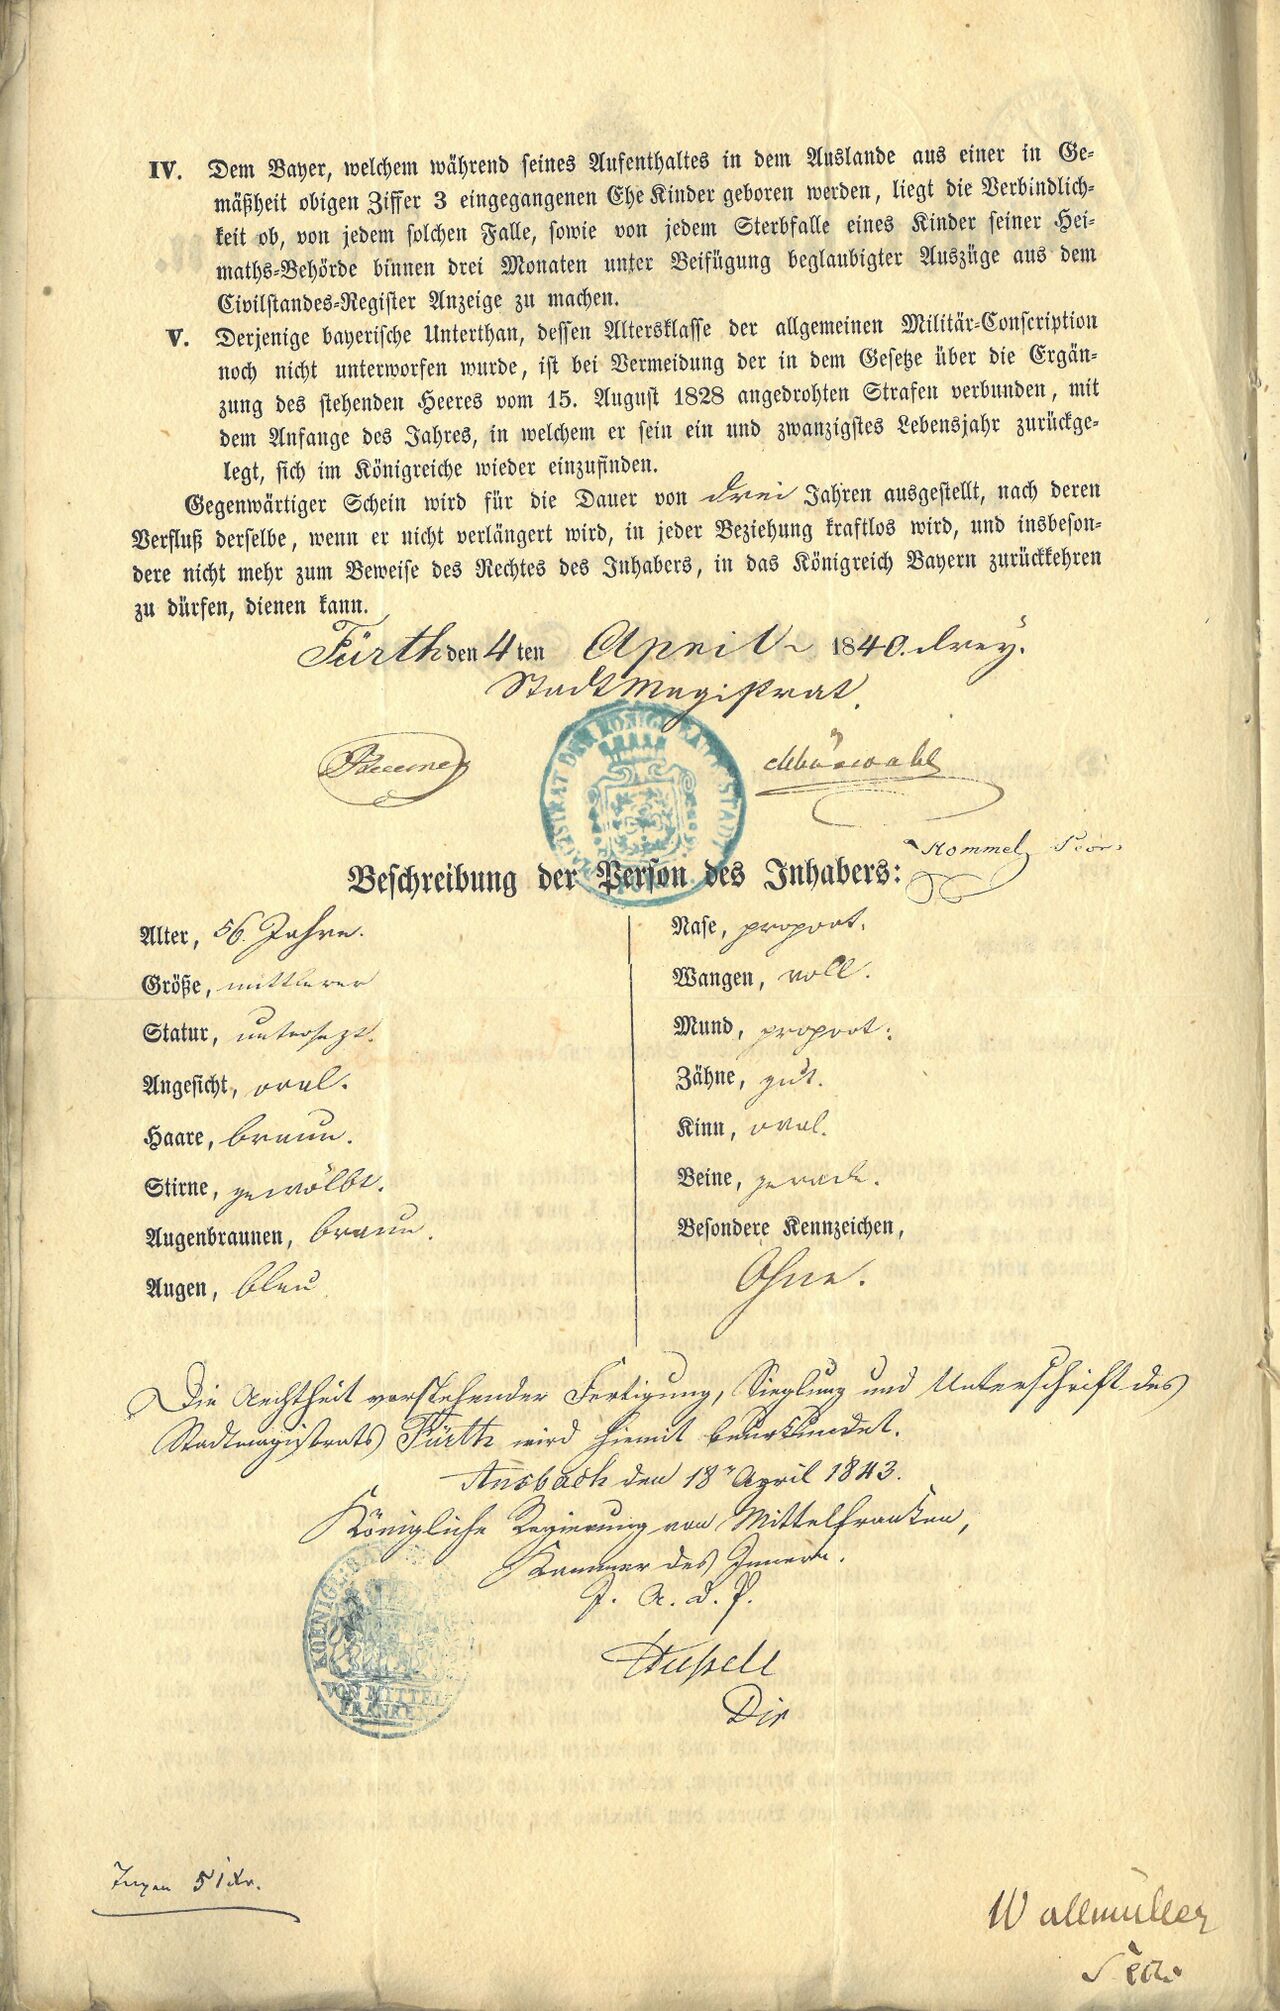 IV. Dem Bayer, welchem während seines Aufenthaltes in dem Auslande aus einer in Ge-
mäßheit obigen Ziffer 3 eingegangenen Ehe Kinder geboren werden, liegt die Verbindlich-
keit ob, von jedem solchen Falle, sowie von jedem Sterbfalle eines Kinder seiner Hei-
maths-Behörde binnen drei Monaten unter Beifügung beglaubigter Auszüge aus dem
Civilstandes-Register Anzeige zu machen.
V. Derjenige bayerische Unterthan, dessen Altersklasse der allgemeinen Militär-Conscription
noch nicht unterworfen wurde, ist bei Vermeidung der in dem Gesetze über die Ergän-
zung des stehenden Heeres vom 15. August 1828 angedrohten Strafen verbunden, mit
dem Anfange des Jahres, in welchem er sein ein und zwanzigstes Lebensjahr zurückge-
legt, sich im Königreiche wieder einzufinden.
Gegenwärtiger Schein wird für die Dauer von drei Jahren ausgestellt, nach deren
Verfluß derselbe, wenn er nicht verlängert wird, in jeder Beziehung kraftlos wird, und insbeson-
dere nicht mehr zum Beweise des Rechtes des Inhabers, in das Königreich Bayern zurückkehren
zu dürfen, dienen kann.
Fürth den 4ten April 1840. drey.
Stadtmagistrat.
Bäumen
Hommel
Beschreibung der Person des Inhabers:
Alter, 56. Jahre.
Größe, mittlerer
Statur, untersezt.
Angesicht, oval.
Haare, braun.
Stirne, gewölbt.
Augenbraunen, braun.
Augen, blau
Nase, proport.
Wangen, voll.
Mund, proport.
Zähne, gut.
Kinn, oval.
Beine, gerade.
Besondere Kennzeichen,
Ohne.
Die Aechtheit vorstehender Fertigung, Sieglung und Unterschrift des
Stadtmagistrats Fürth wird hiemit beurkundet.
Ansbach den 18n April 1843.
Königliche Regierung von Mittelfranken,
Kammer des Innern.
J. A. d. P.
Dir
KOENIGL. BAY
VON MITTEL-
FRANKEN
51 Kr.
Wallmüller